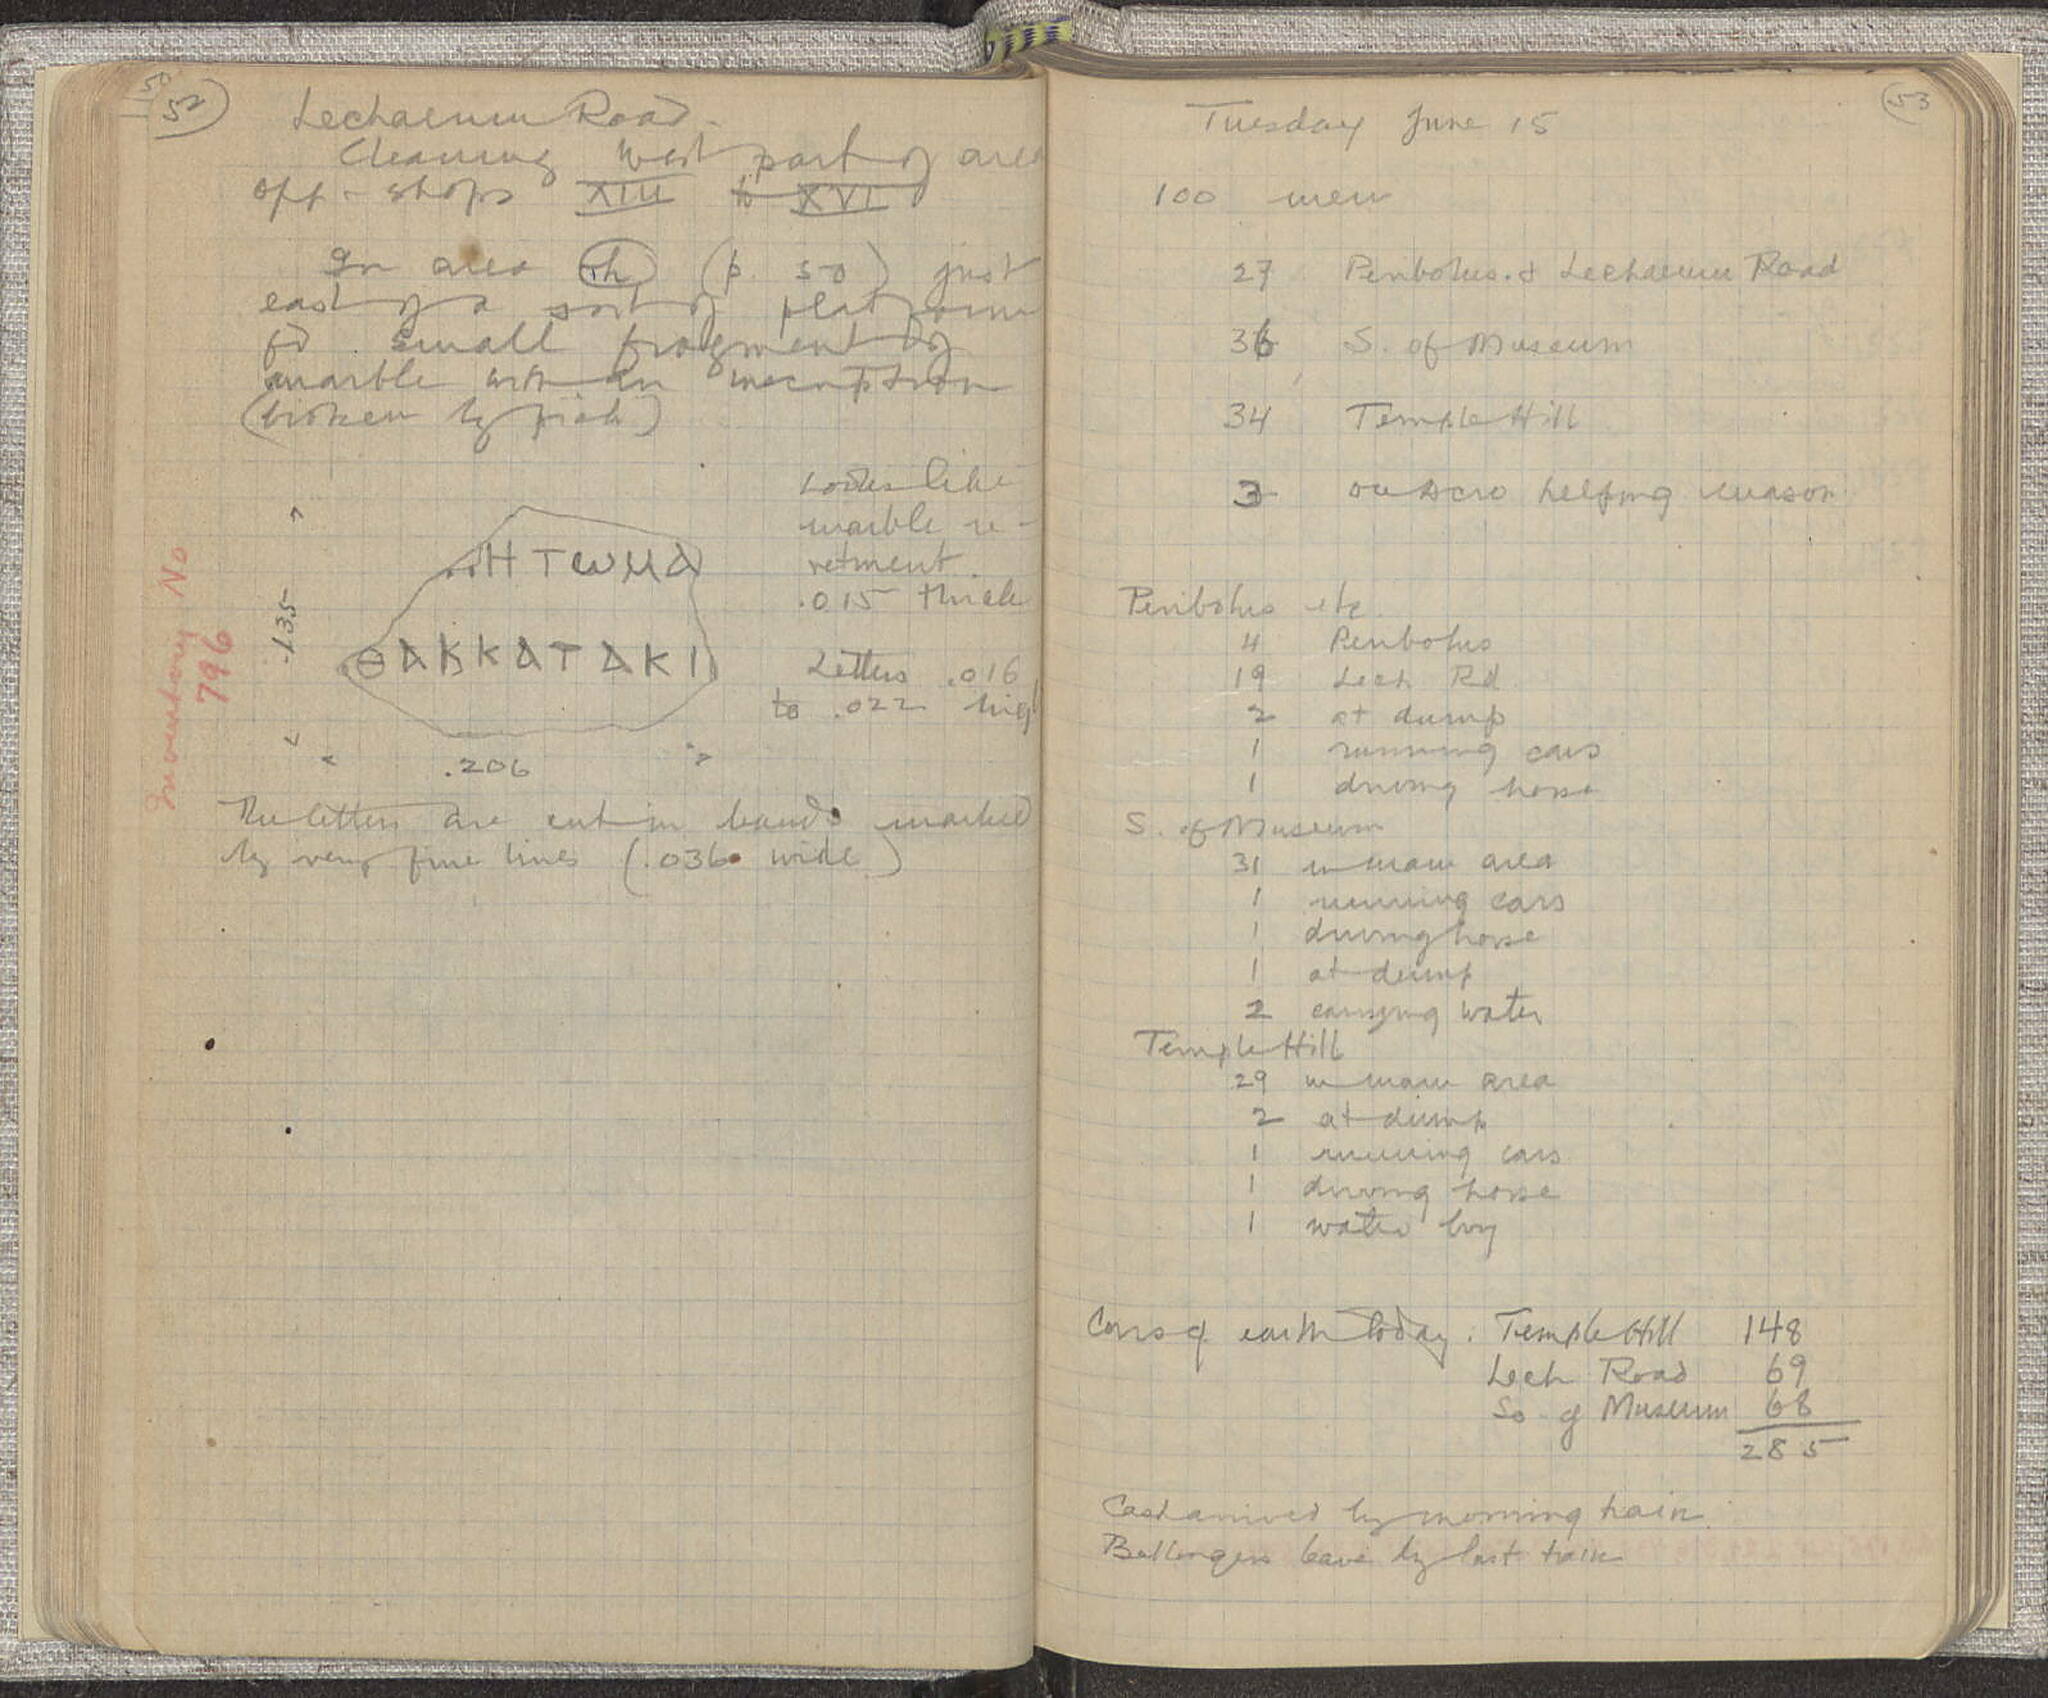 52
Lechaeum Road.
Cleaning West part of area
opp - shops XIII to XVI
In area h (p. 50) just
east of a sort of platform
fd. small fragment of
marble with an inscription
(broken by pick)
Looks like
marble re-
vetment.
.015 thick
ΗΤΩΜΑ
ΘΑΚΚΑΤΑΚΙ
Letters .016
to .022 high
.135
.206
Inventory No
796
The letters are cut in bands marked
by very fine lines (.036 wide)
53
Tuesday June 15
100 men
27 Peribolus & Lechaeum Road
36 S. of Museum
34 Temple Hill
3 on Acro helping mason
Peribolus etc.
4 Peribolus
19 Lech Rd
2 at dump
1 running cars
1 driving horse
S. of Museum
31 in main area
1 running cars
1 driving horse
1 at dump
2 carrying water
Temple Hill
29 in main area
2 at dump
1 running cars
1 driving horse
1 water boy
Cars of earth today: Temple Hill 148
Lech Road 69
So. of Museum 68
285
Cash arrived by morning train.
leave by last train